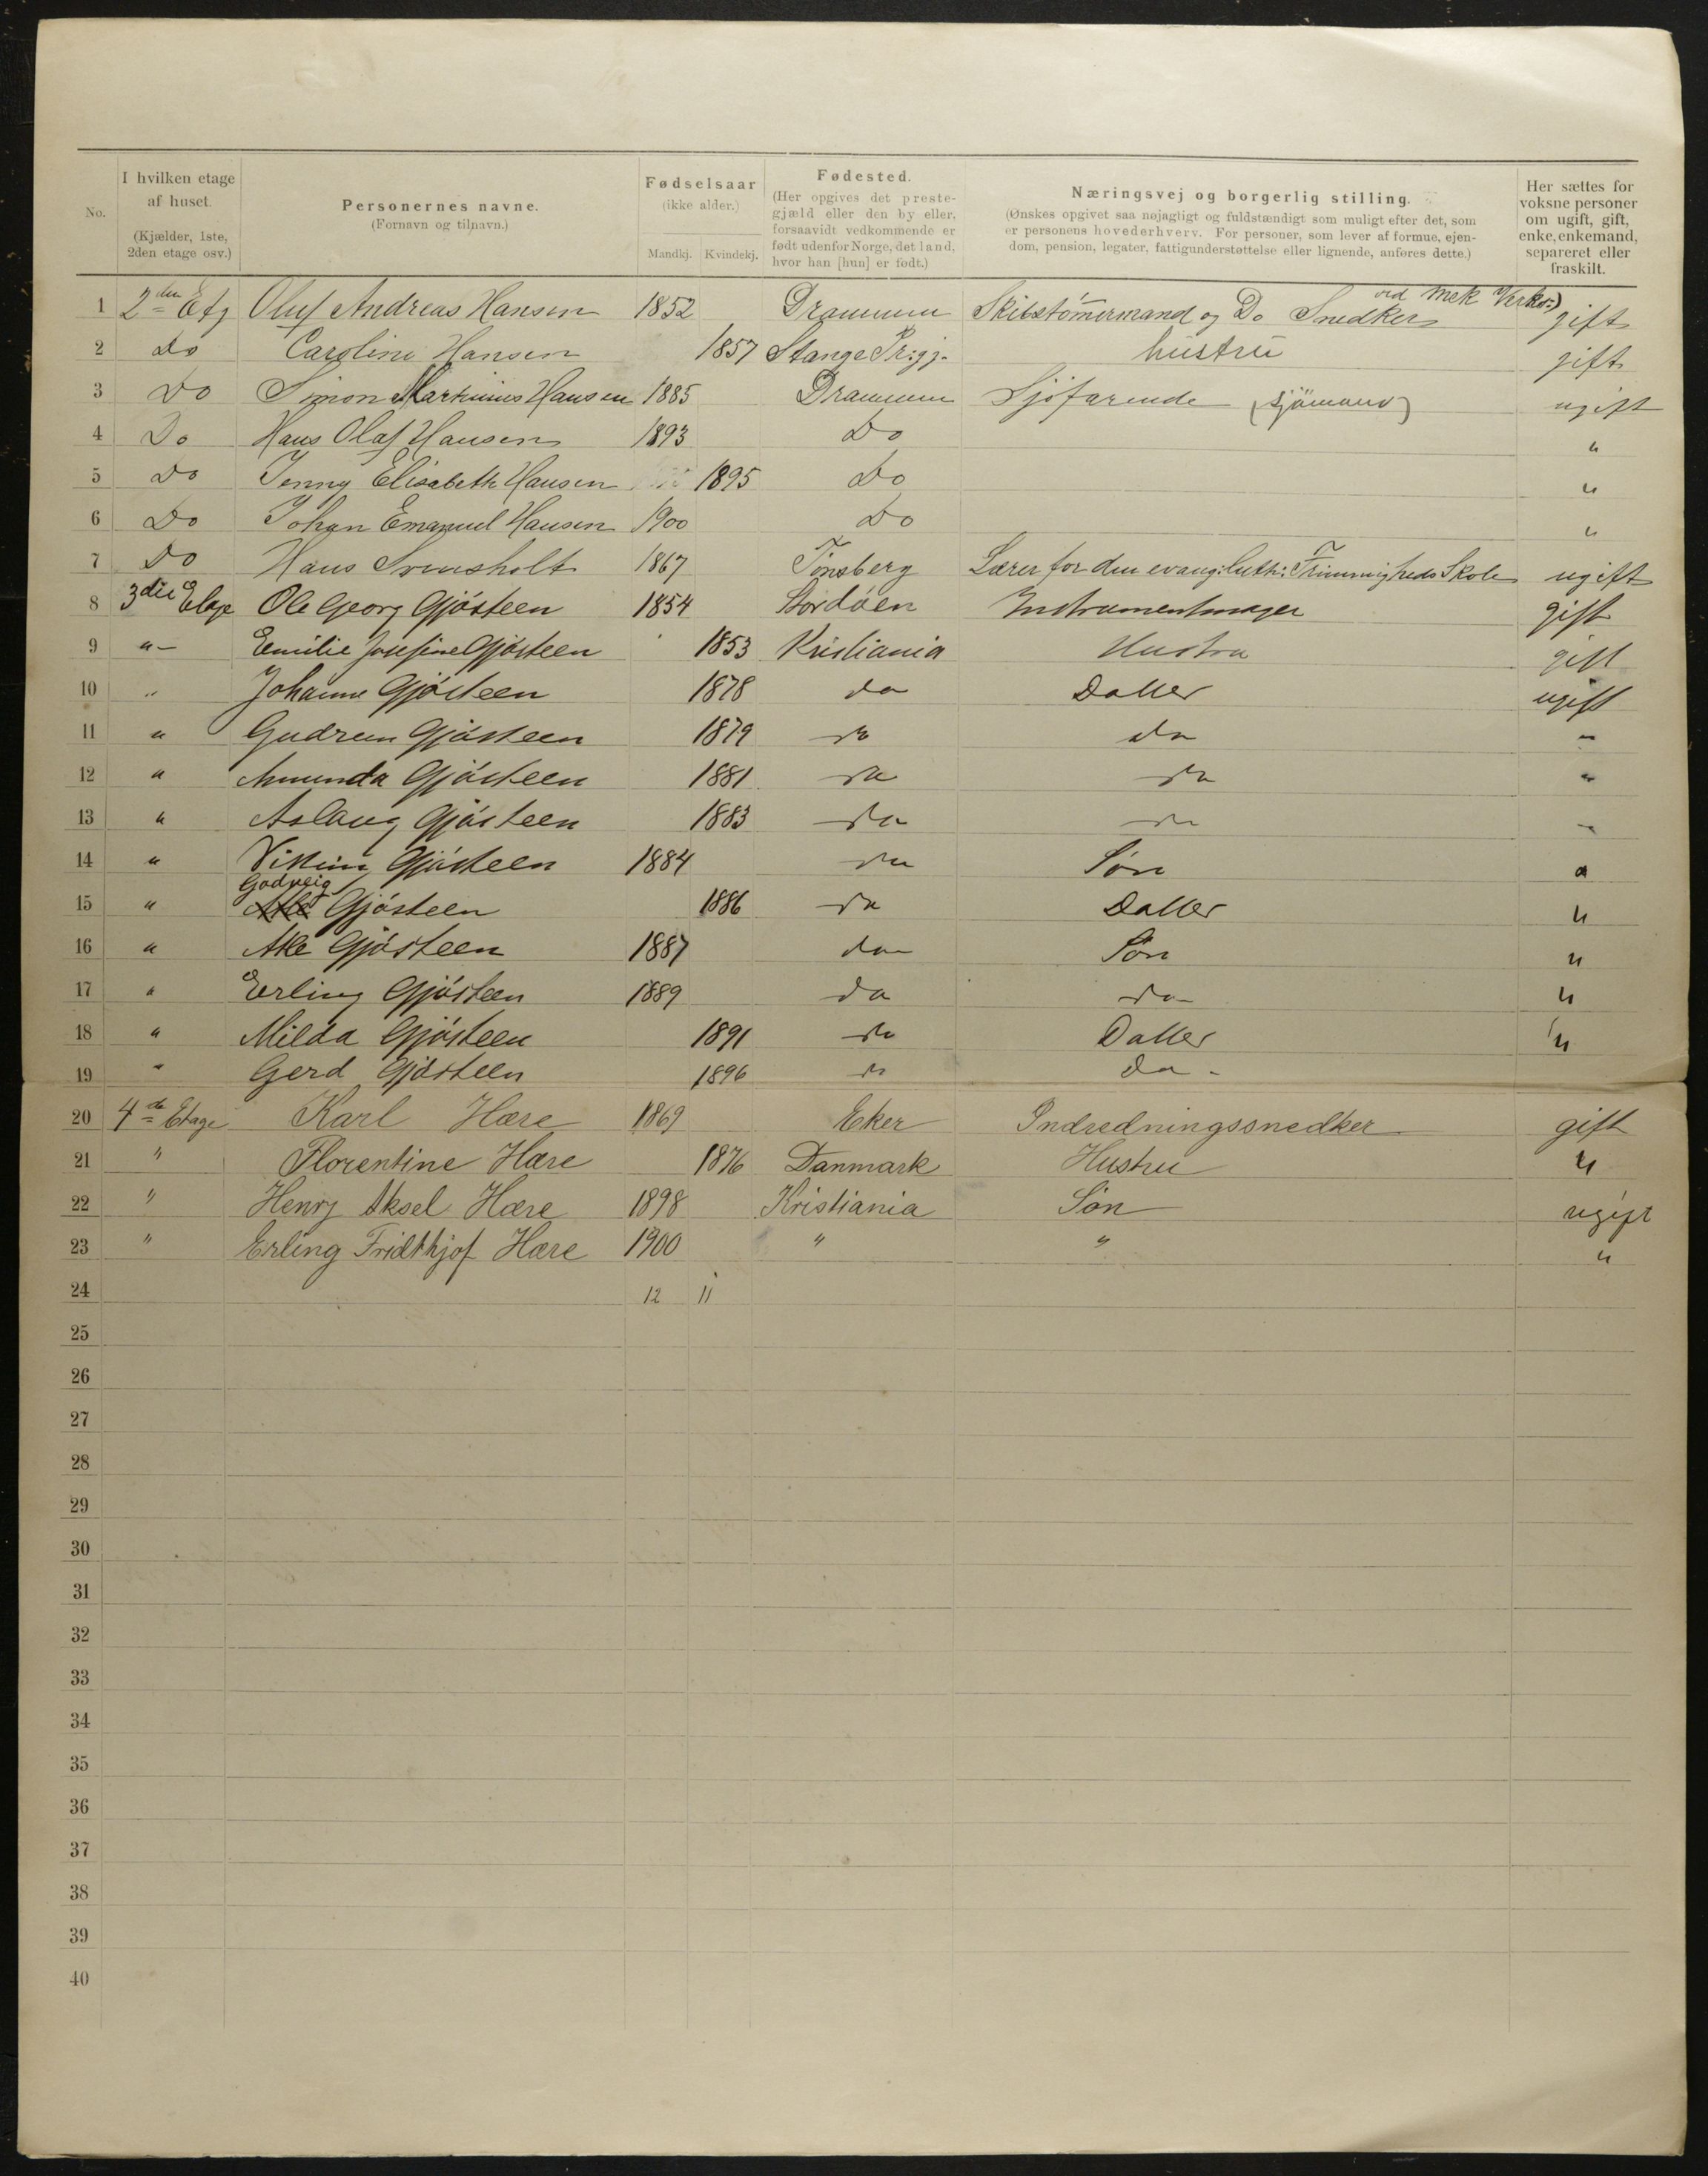 No. | I hvilken etage af huset. (Kjælder, 1ste, 2den etage osv.) | Personernes navne. (Fornavn og tilnavn.) | Fødselsaar (ikke alder.) Mandkj. | Kvindekj. | Fødested. (Her opgives det prestegjæld eller den by eller, forsaavidt vedkommende er født udenfor Norge, det land, hvor han [hun] er født.) | Næringsvej og borgerlig stilling. (Ønskes opgivet saa nøjagtigt og fuldstændigt som muligt efter det, som er personens hovederhverv. For personer, som lever af formue, ejendom, pension, legater, fattigunderstøttelse eller lignende, anføres dette.) | Her sættes for voksne personer om ugift, gift, enke, enkemand, separeret eller fraskilt.
1 2den Etg Oluf Andreas Hansen 1852 Drammen Skibstömmermand og Do Snedker ved Mek Verks:) gift
2 Do Caroline Hansen 1857 Stange Pr:gj. hustru gift
3 Do Simon Martinius Hansen 1885 Drammen Sjöfarende (sjömand) ugift
4 Do Hans Olaf Hansen 1893 Do "
5 Do Jenny Elisabeth Hansen 1895 Do "
6 Do Johan Emanuel Hansen 1900 Do "
7 Do Hans Svensholt 1867 Tönsberg Lærer for den evang:luth: Frimenigheds Skole ugift
8 3die Etage Ole Georg Gjösteen 1854 Stordöen Instrumentmager gift
9 " – Emilie Josefine Gjösteen 1853 Kristiania Hustru gift
10 " Johanne Gjösteen 1878 do Datter ugift
11 " Gudrun Gjösteen 1879 do do "
12 " Amunda Gjösteen 1881 do do "
13 " Aslaug Gjösteen 1883 do do "
14 " Viking Gjösteen 1884 do Søn "
15 " Godveig Gjösteen 1886 do Datter "
16 " Atle Gjösteen 1887 do Søn "
17 " Erling Gjösteen 1889 do do "
18 " Milda Gjösteen 1891 do Datter "
19 " Gerd Gjösteen 1896 do do -
20 4de Etage Karl Hære 1869 Eker Indredningssnedker gift
21 " Florentine Hære 1876 Danmark Hustru "
22 " Henry Aksel Hære 1898 Kristiania Søn ugift
23 " Erling Fridthjof Hære 1900 " " "
24 12 11
25
26
27
28
29
30
31
32
33
34
35
36
37
38
39
40